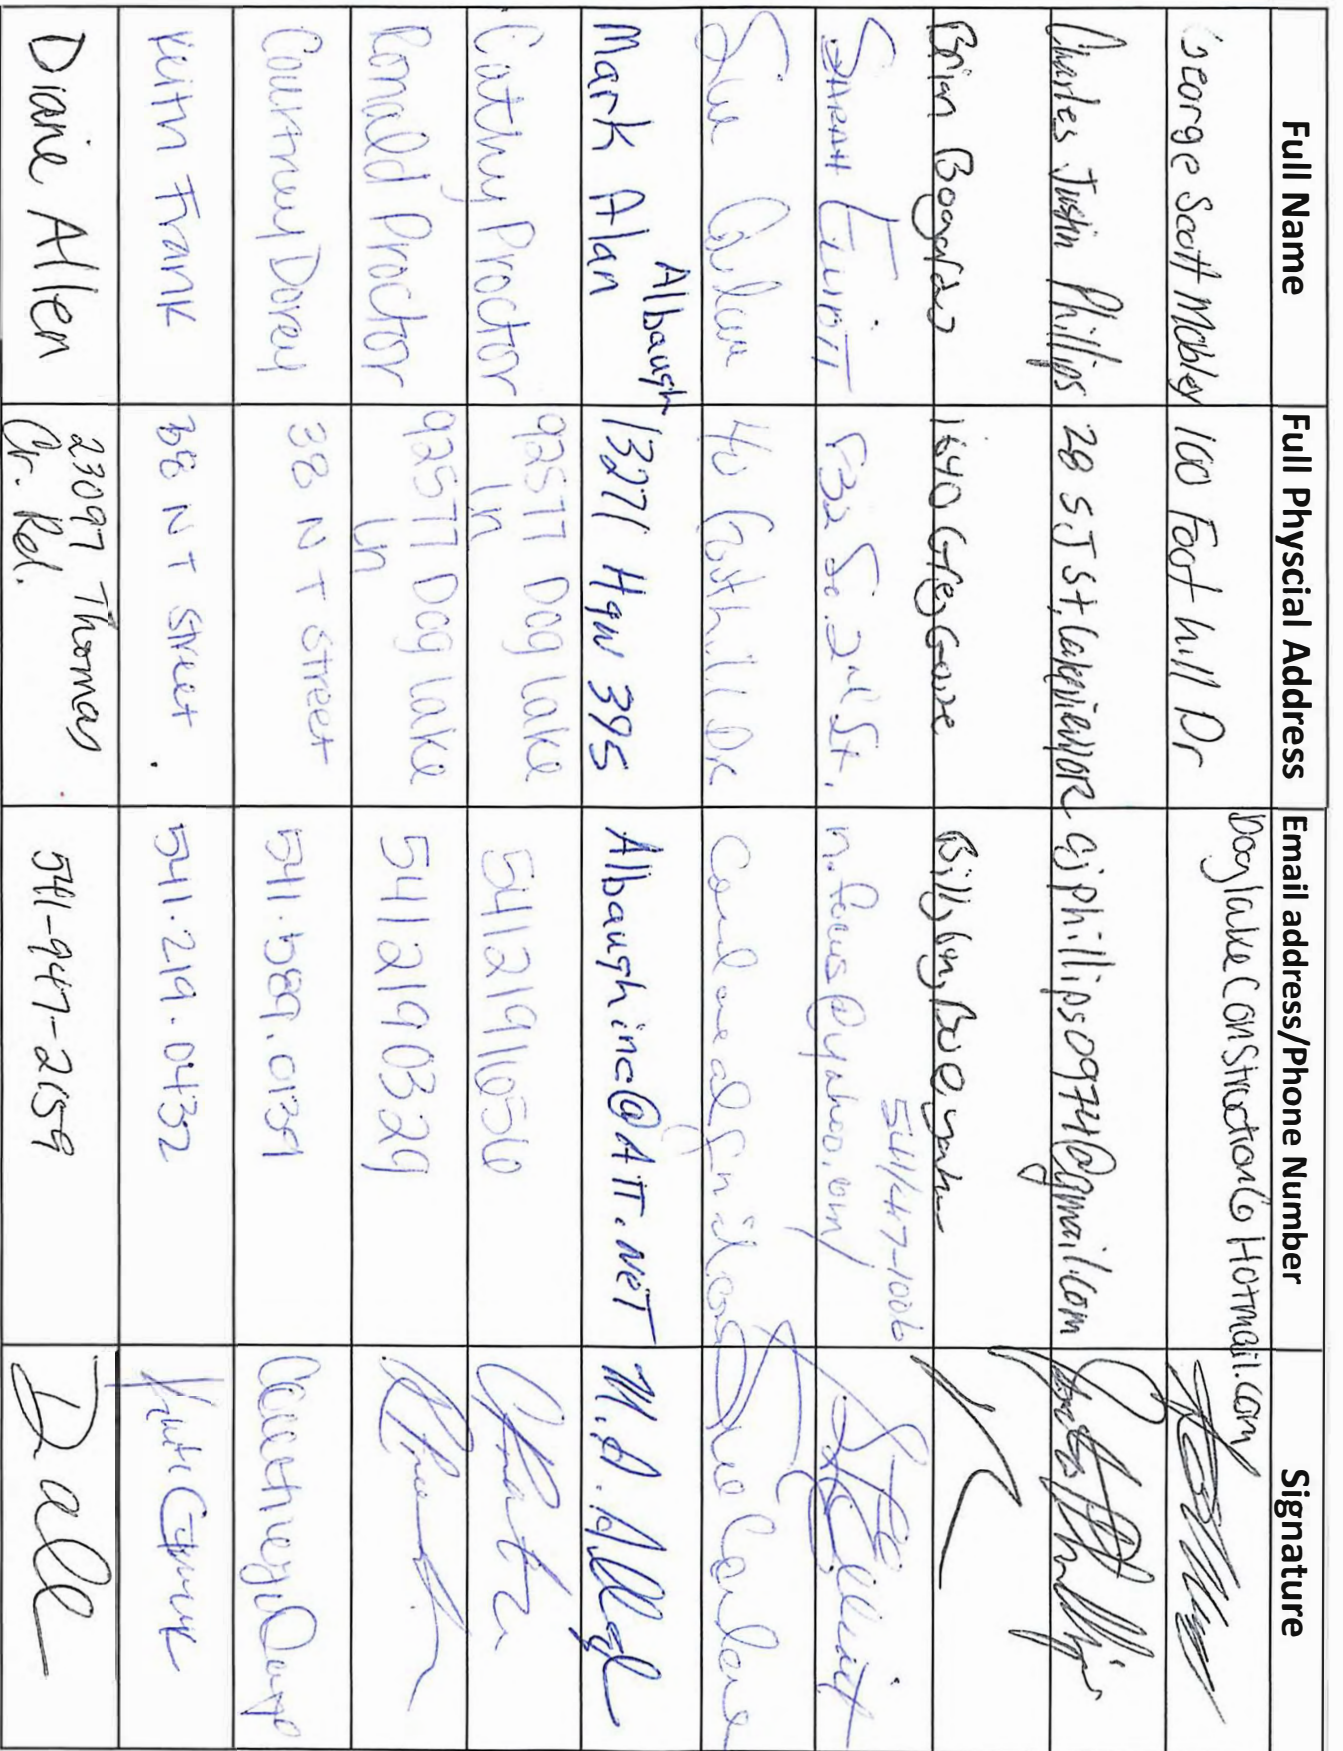 Full Name Full Physcial Address Email address/Phone Number Signature
George Scott Mobley 100 Foot hill Dr DoglakeConstruction@Hotmail.com
Charles Justin Phillips 28 S J St, Lakeview OR cjphillips0974@gmail.com
Brian 1640 Grey Goose
541/417-1006
Sarah Elliott 832 So. 2nd St. n.focus@yahoo.com
Sue Carlon 40 Foothill Dr Sue
Albaugh
Mark Alan 13271 Hqw 395 Albaughinc@ATT.NET M.A. Albaugh
Cathy Proctor 92577 Dog lake 5412191656
Ln
Ronald Proctor 92577 Dog lake 5412190329
Ln
Courtney Dorey 38 N T street 541.589.0139 Courtney
Keith Frank 38 N T street 541.219.0432 Keith
Diane Allen 23097 Thomas 541-947-2159 D all
Cr. Rd.